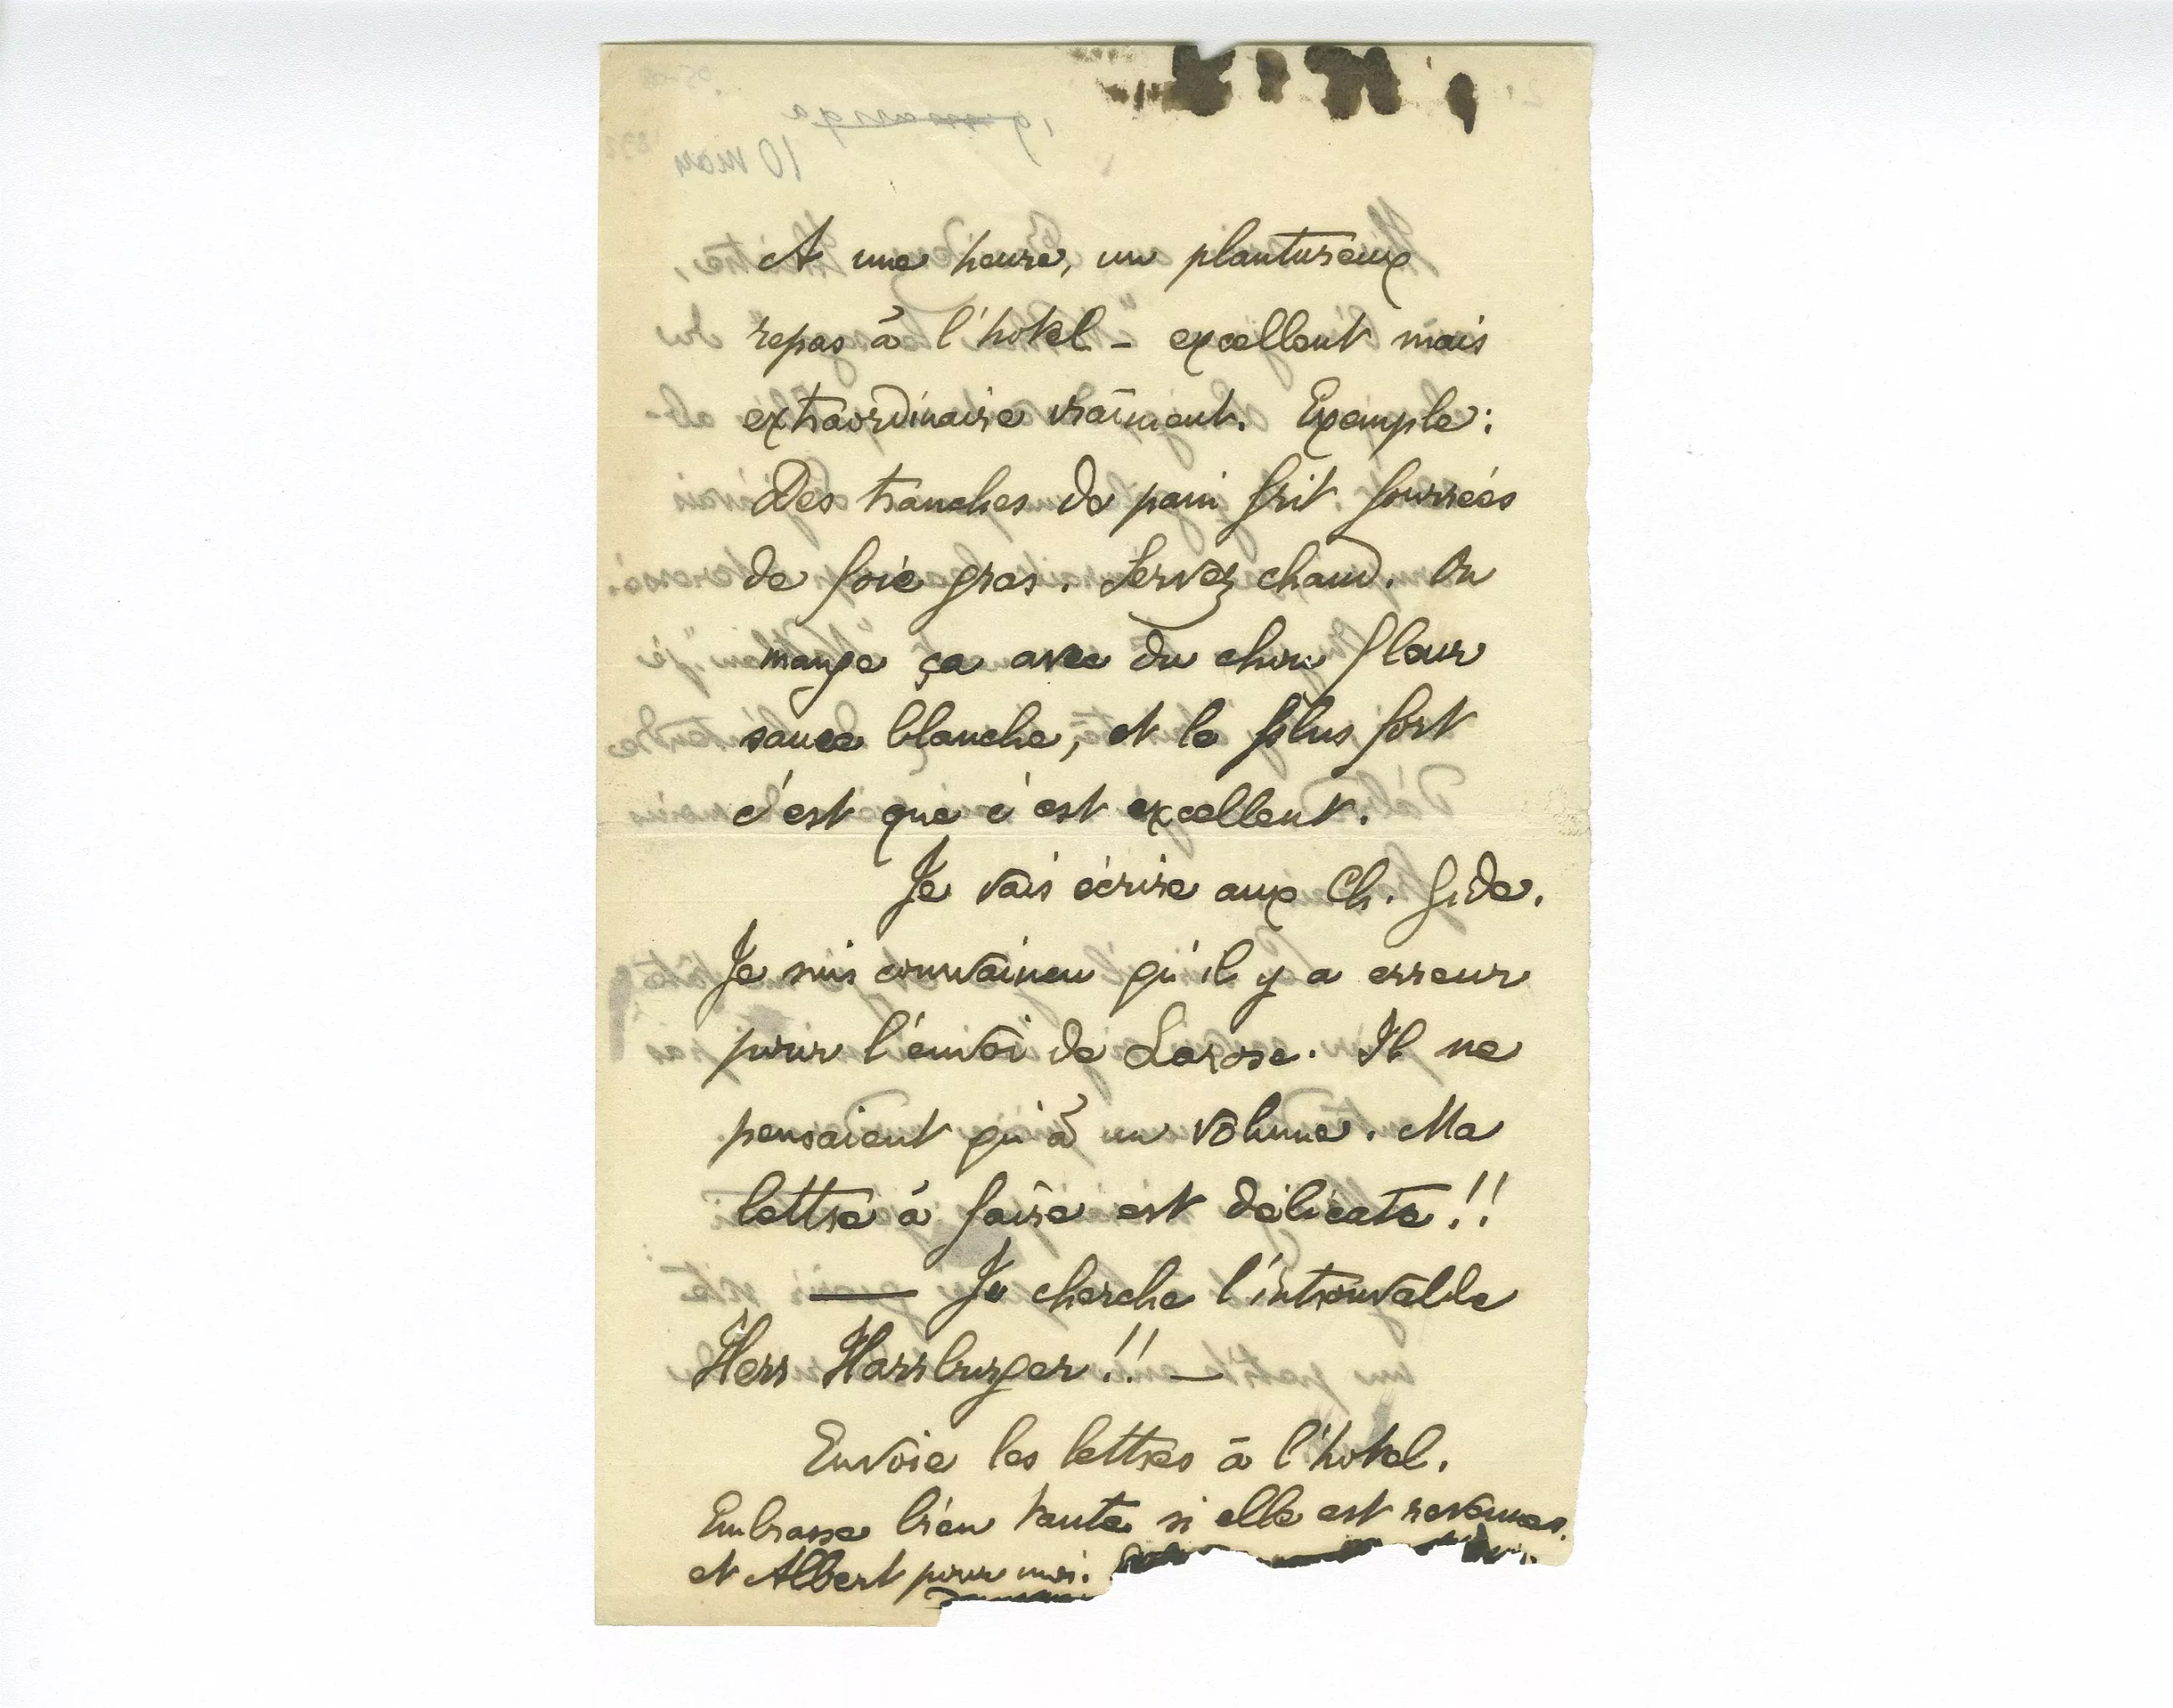 A une heure, un plantureux
repas à l'hotel - excellent mais
extraordinaire vraiment. Exemple :
Des tranches de pain frit fourrées
de foie gras. Servez chaud. On
mange ça avec du chou fleur
sauce blanche, et le plus fort
c'est que c'est excellent.
Je vais écrire aux Ch. Gide.
Je suis convaincu qu'il y a erreur
pour l'envoi de Larose. Il ne
pensaient qu'à un volume. Ma
lettre à faire est délicate !!
— Je cherche l'introuvable
Herr Harrburger !! —
Envoie les lettres à l'hotel.
Embrasse bien tante si elle est revenue.
et Albert pour moi.